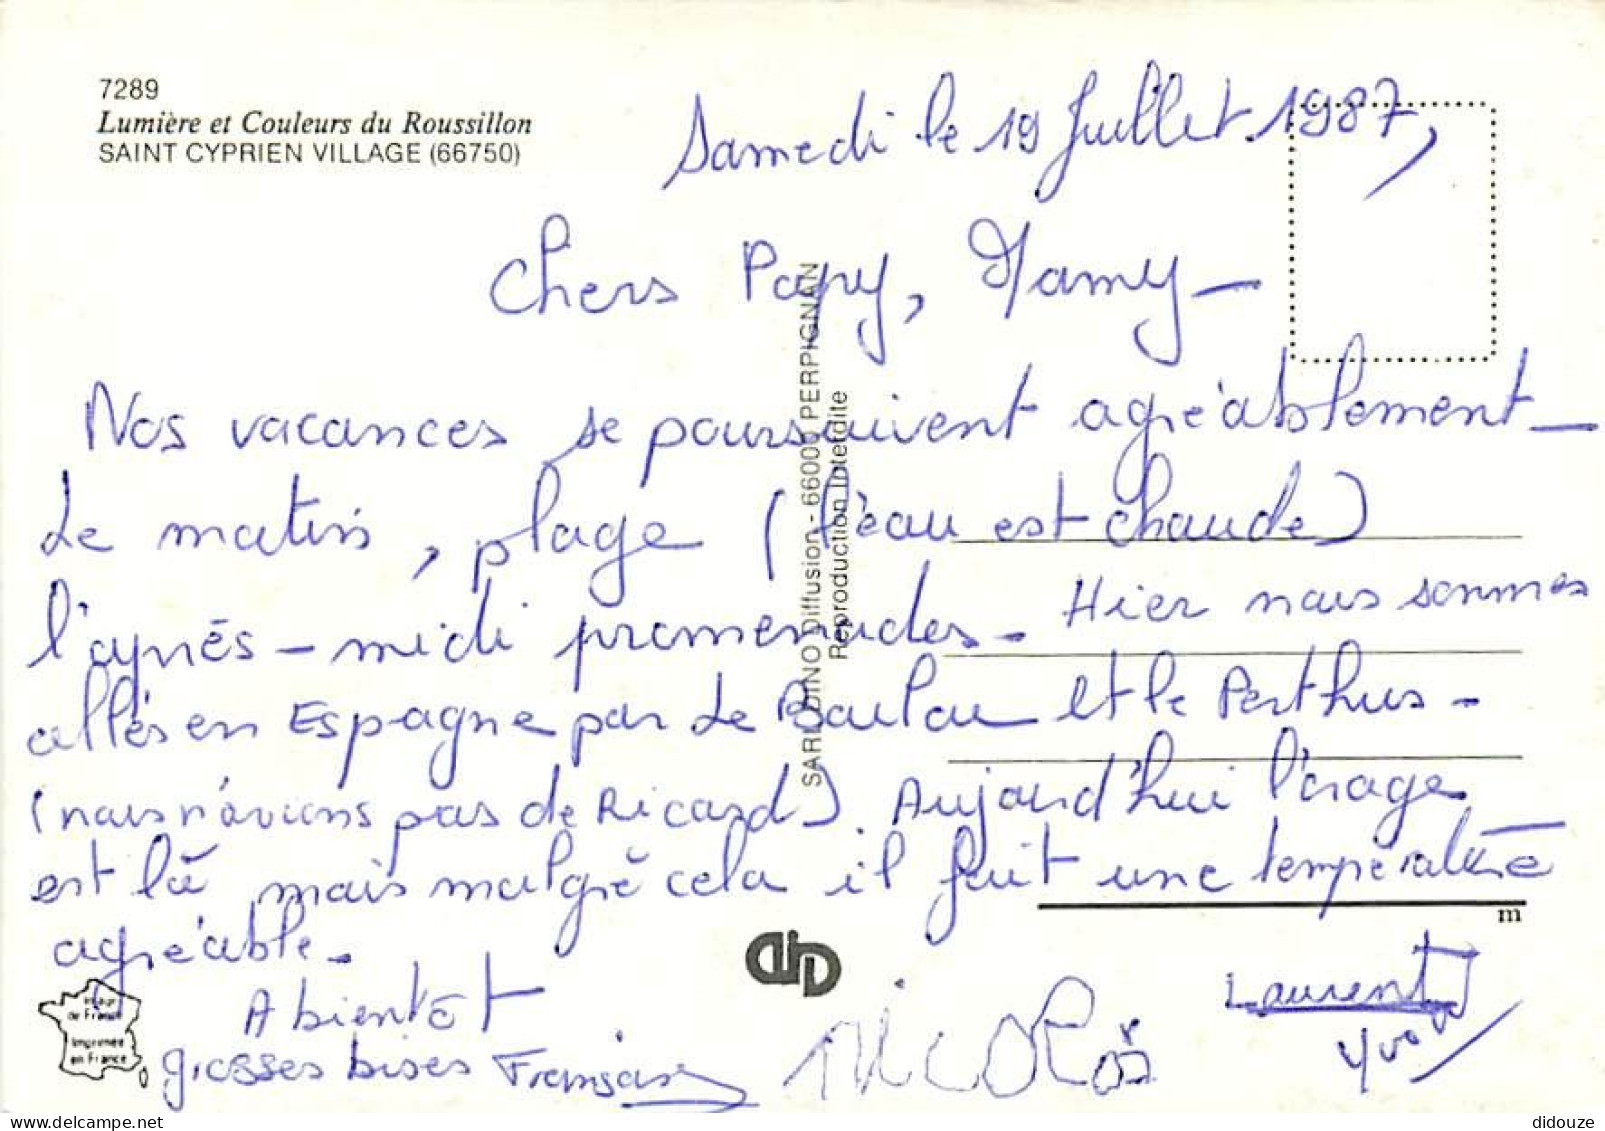 7289
Lumière et Couleurs du Roussillon
SAINT CYPRIEN VILLAGE (66750)
Samedi le 19 Juillet 1987,
Chers Papy, Mamy -
Nos vacances se poursuivent agréablement -
Le matin, plage (l'eau est chaude)
l'après-midi promenades. Hier nous sommes
allés en Espagne par Le Boulou et le Perthus -
(nous n'avions pas de Ricard). Aujourd'hui l'orage
est là mais malgré cela il fait une température
agréable -
A bientôt
grosses bises
Nicolas
Laurent
Yvon
SARL DINO Diffusion - 66000 PERPIGNAN
Reproduction Interdite
m
de France
Imprimée
en France
didouze